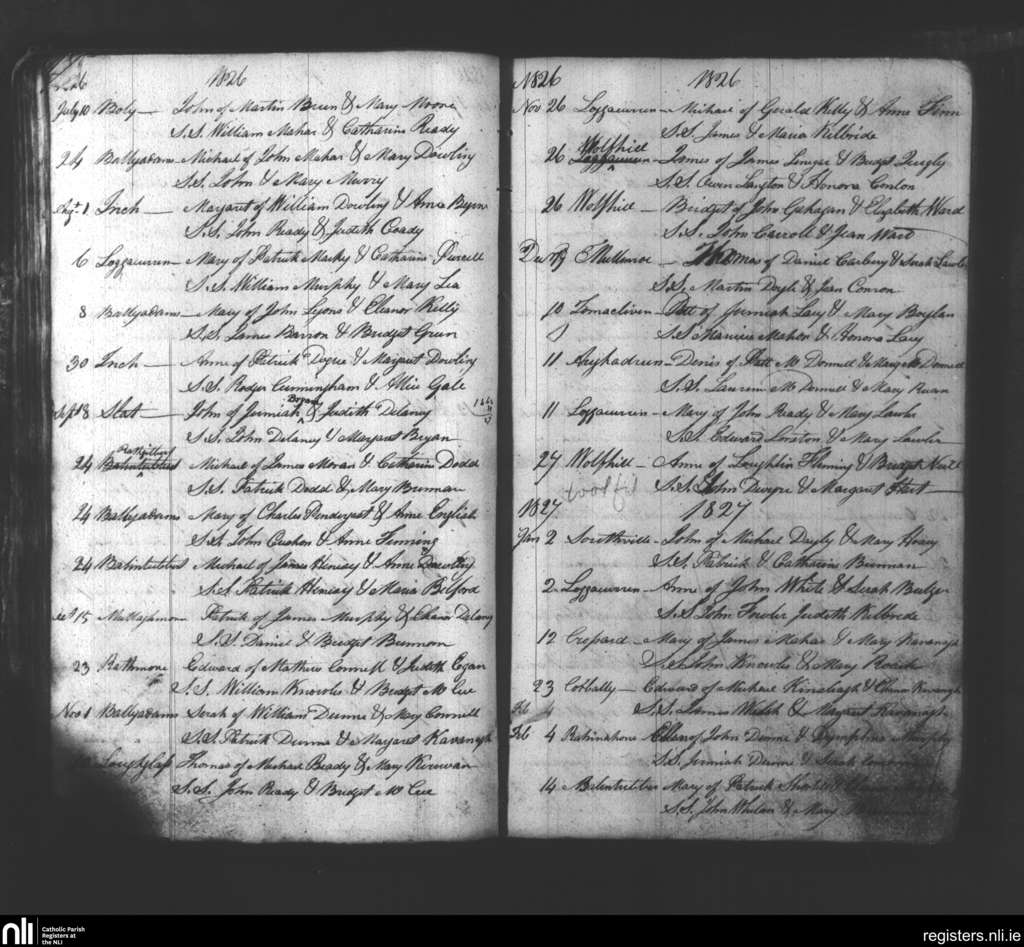 1826
1826
July 10 Boly — John of Martin Breen & Mary Moore
S.S. William Mahar & Catharine Ready
24 Ballyadams — Michael of John Mahar & Mary Dowling
S.S. John & Mary Murry
Augt. 1 Inch — Margaret of William Dowling & Anne Byrne
S.S. John Ready & Judith Coady
6 Loggacurren — Mary of Patrick Marky & Catharine Purcell
S.S. William Murphy & Mary Lea
8 Ballyadams — Mary of John Lyons & Eleanor Kelly
S.S. James Barron & Bridget Green
30 Inch — Anne of Patrick Degue & Margaret Dowling
S.S. Rodger Cunningham & Allice Gale
Sept 8 Slat — John of Jermiah Bryan & Judith Delaney
S.S. John Delaney & Margaret Bryan
24 Michael of James Moran & Catharine Dodd
S.S. Patrick Dodd & Mary Brennan
24 Ballyadams Mary of Charles Pendergast & Anne English
S.S. John Cushon & Anne Fleming
24 Balintubbert Michael of James Henesy & Anne Dowling
S.S. Patrick Henesy & Maria Belford
Oct 15 Patrick of James Murphy & Delany
S.S. Daniel & Bridget Brennon
23 Rathmore Edward of Mathew Connell & Judith Egan
S.S. William Knowls & Bridget McCue
Nov 1 Ballyadams Sarah of William Dunne & Mary Connell
S.S. Patrick Dunne & Margaret Kavanagh
Loughglass Thomas of Michael Ready & Mary Kirwan
S.S. John Ready & Bridget McCue
1826
1826
Nov 26 Loggacurren — Michael of Gerald Kelly & Anne Finn
S.S. James & Maria Kilbride
Wolfhill
26 Loggacurren — James of James & Bridget Quigly
S.S. Owen Langton & Honora Conlon
26 Wolfhill — Bridget of John Gahagan & Elizabeth Ward
S.S. John Carroll & Jean Ward
Dec Mullinroe — Thomas of Daniel Carbery & Sarah Lawler
S.S. Martin Doyle & Jean Conron
10 Tomaclivin — Patt of Jermiah Lacy & Mary Boylan
S.S. Maurice Maher & Honora Lacy
11 Aughadreen — Denis of Patt McDonnell & Margt McDonnell
S.S. Laurence McDonnell & Mary Ruan
11 Loggacurren — Mary of John Ready & Mary Lawler
S.S. Edward & Mary Lawler
27 Wolfhill — Anne of Loughlin Fleming & Bridget Neill
S.S. John Dwyre & Margaret
1827
1827
Jan 2 Southville — John of Michael Dayly & Mary Hoary
S.S. Patrick & Catharine Brennan
2 Loggacurren — Anne of John White & Sarah Bulger
S.S. John Fowler Judith Kilbride
12 Cropard — Mary of James Mahar & Mary Kavanagh
S.S. John Knowles & Mary Roach
23 Cobbally — Edward of Michael Kinsleagh & Kavanagh
Feb 4 S.S. James Welsh & Margret Kavanagh
Feb 4 Rahinahone Ellen of John Dunne & Dymphna Murphy
S.S. Jermiah Dunne & Sarah
14 Balintubbert Mary of Patrick
S.S. John Whelan & Mary
nli
Catholic Parish
Registers at
the NLI
registers.nli.ie